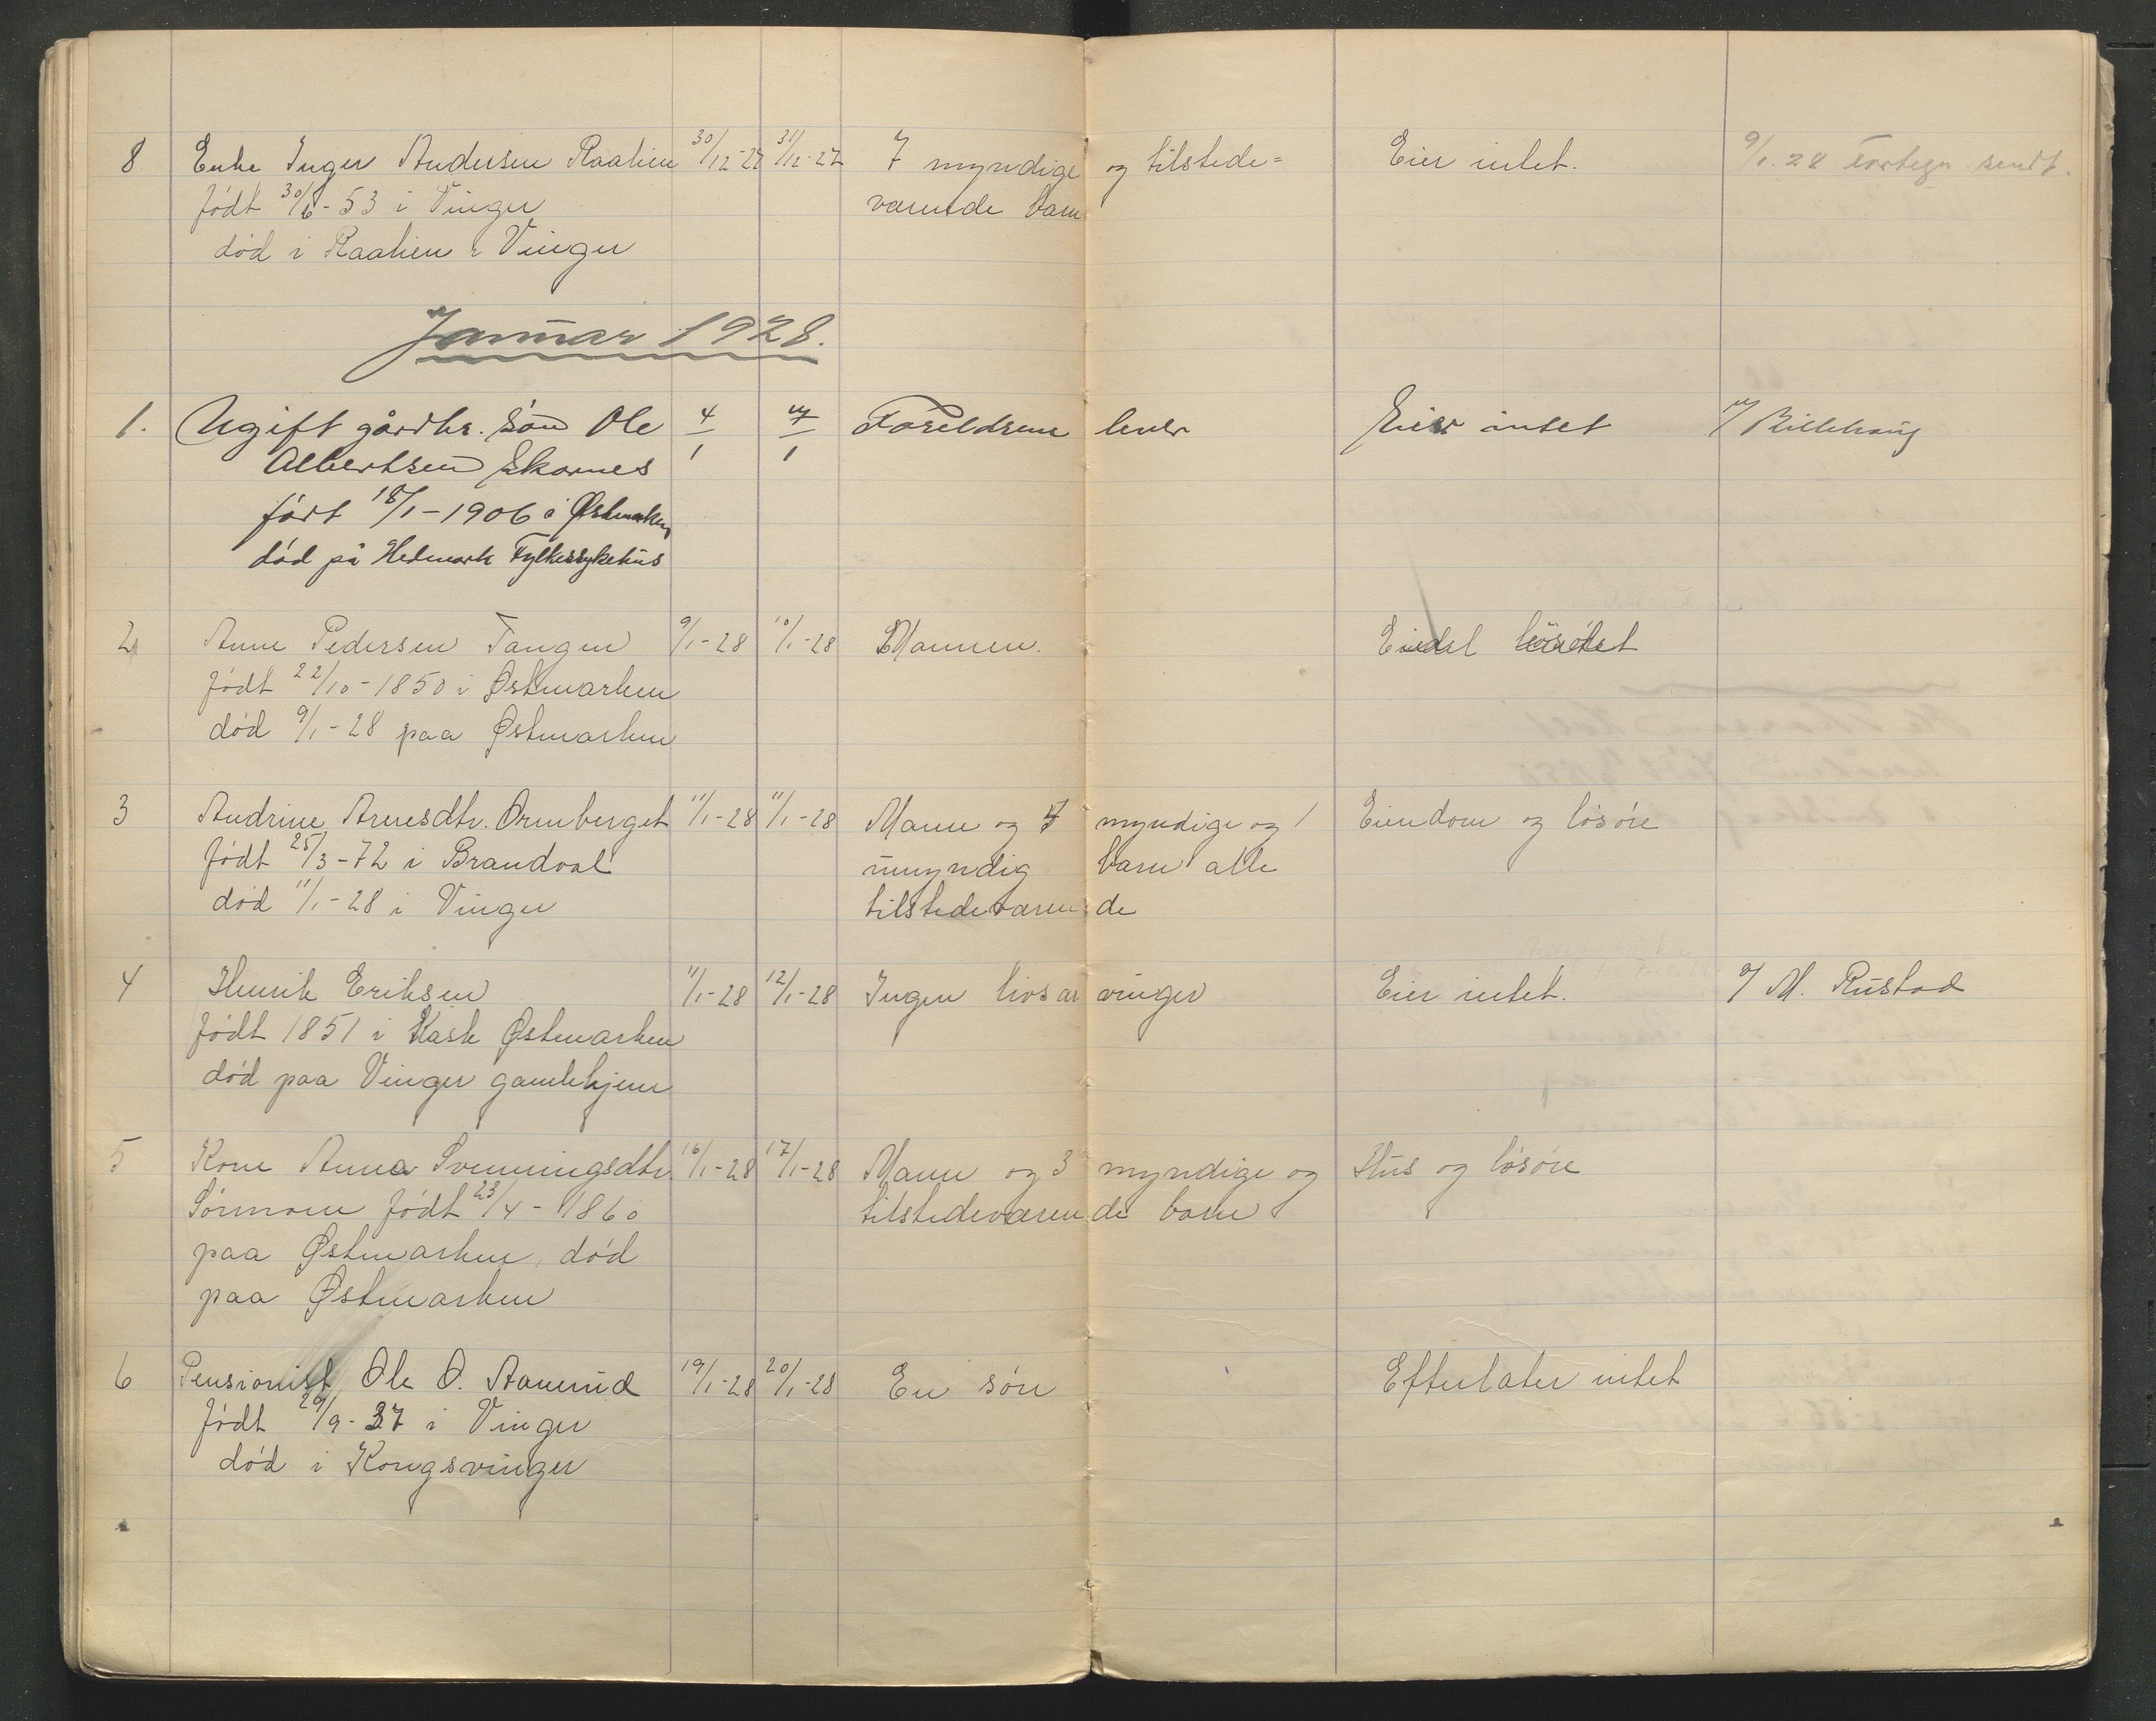 8 Enke Inger Andersen Raalien 30/12-27 31/12-27 7 myndige og tilstede= Eier intet. 9/1.28 Fortegn. sendt.
født 30/6-53 i Vinger værende barn
død i Raalien i Vinger
Januar 1928.
1. Ugift gårdbr. søn Ole 4/1 7/1 Foreldrene lever Eier intet
Albertsen Skarnes
født 18/1-1906 i Østmarken
død på Hedmark Fylkessykehus
2 Anne Pedersen Tangen 9/1-28 10/1-28 Mannen. Endel
født 22/10-1850 i Østmarken
død 9/1-28 paa Østmarken
3 Andrine Arnesdtr. Ormberget 11/1-28 11/1-28 Mann og myndige og 1 Eiendom og løsøre
født 25/3-72 i Brandval umyndig barn alle
død 11/1-28 i Vinger tilstedeværende
4 Henrik Eriksen 11/1-28 12/1-28 Ingen livsarvinger Eier intet. M. Rustad
født 1851 i Østmarken
død paa Vinger gamlehjem
5 Kone Anna Svenningsdtr. 16/1-28 17/1-28 Mann og 3 myndige og Hus og løsøre
Sørmoen født 23/4-1860 tilstedeværende barn
paa Østmarken, død
paa Østmarken
6 Pensionist Ole O. Aamerud 19/1-28 20/1-28 En søn Efterlater intet
født 29/9-37 i Vinger
død i Kongsvinger